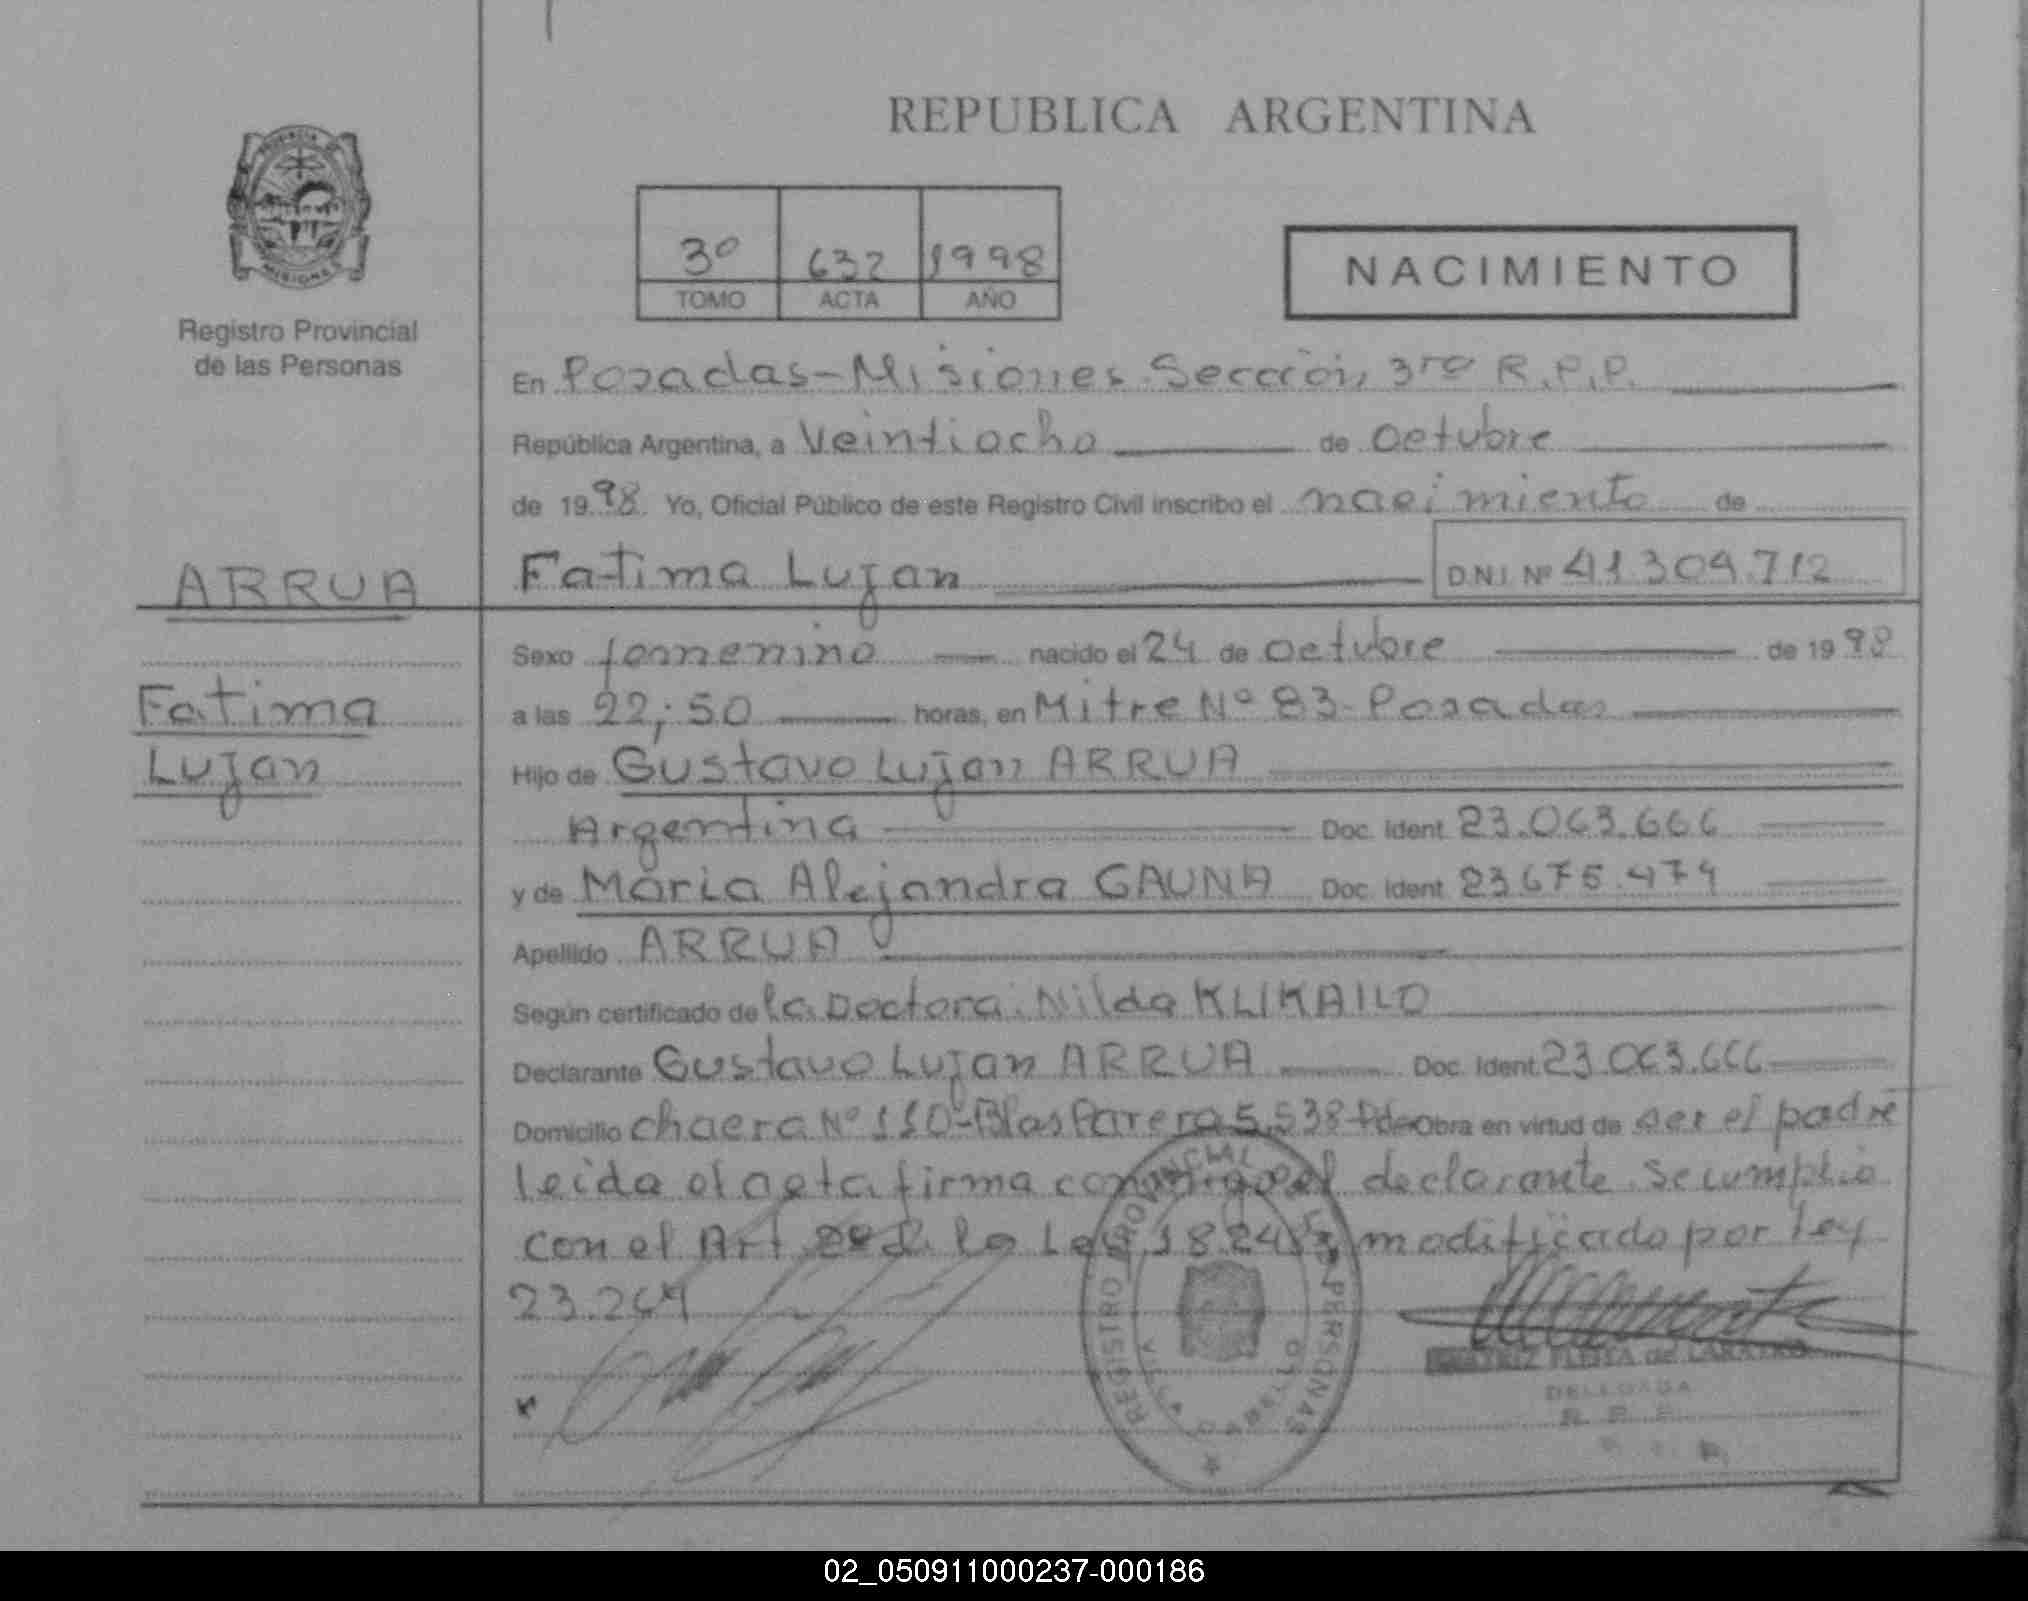 REPUBLICA ARGENTINA
3º 632 1998
TOMO ACTA AÑO
NACIMIENTO
Registro Provincial
de las Personas
En Posadas-Misiones Sección 3ra R.P.P.
República Argentina, a Veintiocho de octubre
de 19 98 Yo, Oficial Público de este Registro Civil inscribo el nacimiento de
ARRUA
Fatima Lujan
Fatima Lujan D.N.I. Nº 41.304.712
Sexo femenino nacido el 24 de octubre de 19 98
a las 22;50 horas, en Mitre Nº 83-Posadas
Hijo de Gustavo Lujan ARRUA
Argentina Doc. Ident. 23.063.666
y de Maria Alejandra GAUNA Doc. Ident. 23675.474
Apellido ARRUA
Según certificado de la Doctora: Nilda KLIKAILO
Declarante Gustavo Lujan ARRUA Doc. Ident. 23.063.666
Domicilio chacra Nº 110-Blas Parera 5.538 Obra en virtud de ser el padre
leida el acta firma conmigo el declarante. Se cumplio
con el Art la Ley 18.248 modificado por ley
23.264
REGISTRO PROVINCIAL DE LAS PERSONAS
VILLA CABELLO
BEATRIZ FLEITA de
DELEGADA
02_050911000237-000186